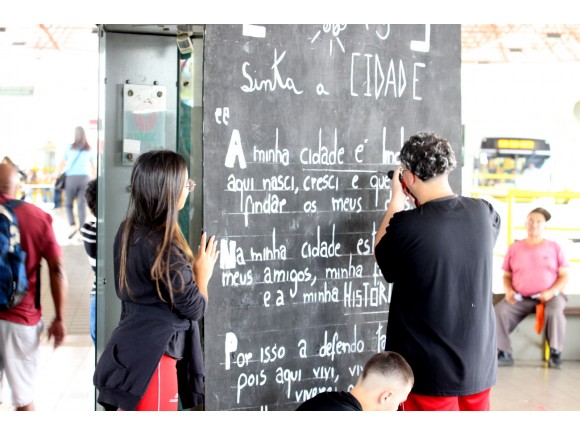 Sinta a CIDADE
"A minha cidade é
aqui nasci, cresci e
findar os meus
Na minha cidade
meus amigos, minha
e a minha HISTÓRI
Por isso a defendo
pois aqui vivi,